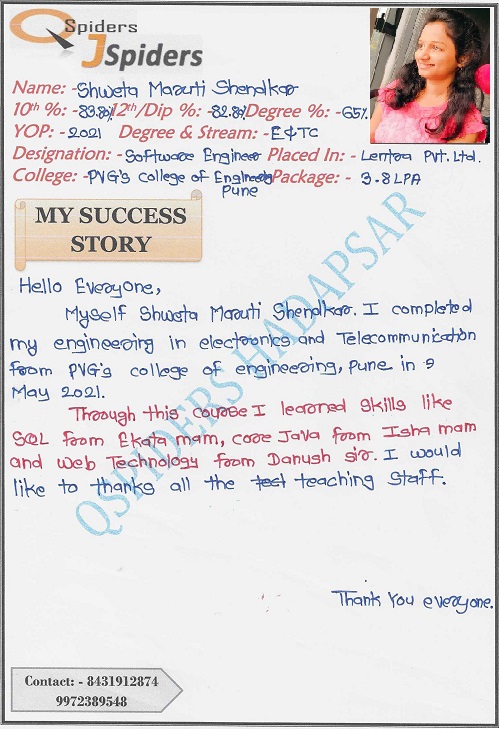 QSpiders
JSpiders
Name: - Shweta Maruti Shendkar
10th %: - 83.8% 12th/Dip %: - 82.8% Degree %: - 65%
YOP: - 2021 Degree & Stream: - E&TC
Designation: - Software Engineer Placed In: - Lentra Pvt. Ltd.
College: - PVG's college of Engineering Package: - 3.8 LPA
Pune
MY SUCCESS
STORY
Hello Everyone,
Myself Shweta Maruti Shendkar. I completed
my engineering in electronics and Telecommunication
from PVG's college of engineering, Pune in
May 2021.
Through this course I learned skills like
SQL from Ekata mam, core Java from Isha mam
and Web Technology from Danush sir. I would
like to thanks all the test teaching Staff.
Thank You everyone.
QSPIDERS HADAPSAR
Contact: - 8431912874
9972389548